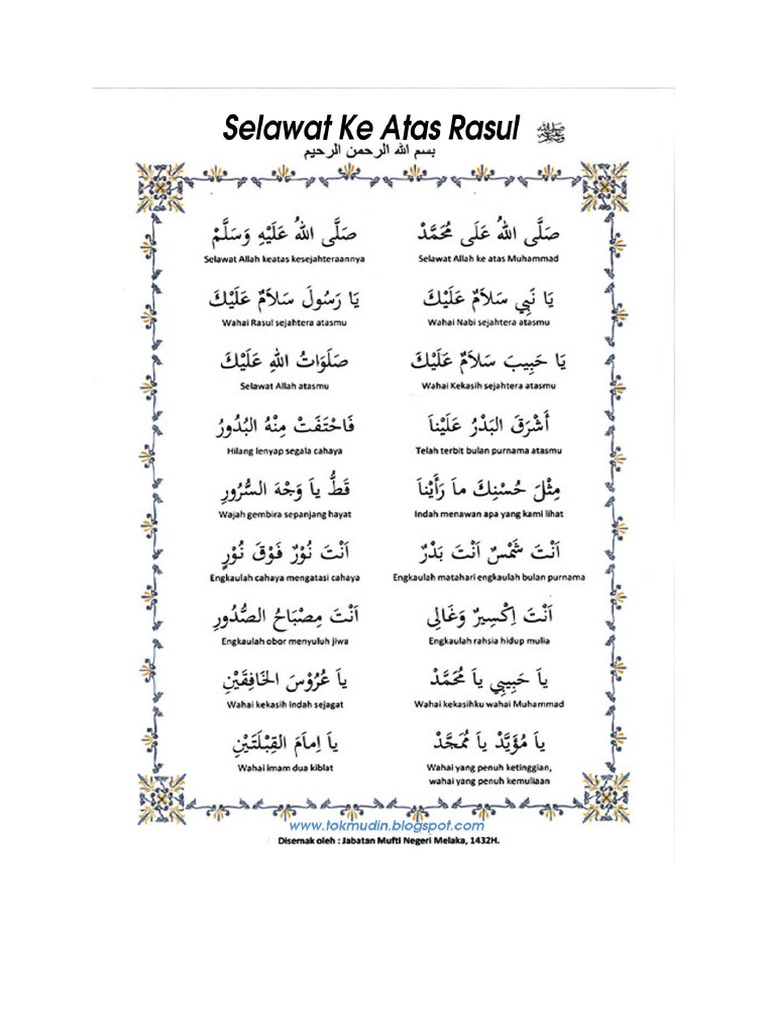 Selawat Ke Atas Rasul ﷺ
بسم الله الرحمن الرحيم
صَلَّى اللهُ عَلَى مُحَمَّدْ
Selawat Allah ke atas Muhammad
صَلَّى اللهُ عَلَيْهِ وَسَلَّمْ
Selawat Allah keatas kesejahteraannya
يَا نَبِي سَلاَمٌ عَلَيْكَ
Wahai Nabi sejahtera atasmu
يَا رَسُولَ سَلاَمٌ عَلَيْكَ
Wahai Rasul sejahtera atasmu
يَا حَبِيبَ سَلاَمٌ عَلَيْكَ
Wahai Kekasih sejahtera atasmu
صَلَوَاتُ اللهِ عَلَيْكَ
Selawat Allah atasmu
أَشْرَقَ البَدْرُ عَلَيْناَ
Telah terbit bulan purnama atasmu
فَاخْتَفَتْ مِنْهُ البُدُورُ
Hilang lenyap segala cahaya
مِثْلَ حُسْنِكَ ماَ رَأَيْناَ
Indah menawan apa yang kami lihat
قَطُّ ياَ وَجْهَ السُّرُورِ
Wajah gembira sepanjang hayat
اَنْتَ شَمْسٌ اَنْتَ بَدْرٌ
Engkaulah matahari engkaulah bulan purnama
اَنْتَ نُوْرٌ فَوْقَ نُوْرٍ
Engkaulah cahaya mengatasi cahaya
اَنْتَ اِكْسِيرٌ وَغَالِى
Engkaulah rahsia hidup mulia
اَنْتَ مِصْبَاحُ الصُّدُورِ
Engkaulah obor menyuluh jiwa
ياَ حَبِيبِي ياَ مُحَمَّدْ
Wahai kekasihku wahai Muhammad
ياَ عُرُوْسَ الخَافِقَيْنِ
Wahai kekasih indah sejagat
ياَ مُؤَيَّدْ ياَ مُمَجَّدْ
Wahai yang penuh ketinggian,
wahai yang penuh kemuliaan
ياَ اِمامَ القِبْلَتَيْنِ
Wahai imam dua kiblat
www.tokmudin.blogspot.com
Disemak oleh : Jabatan Mufti Negeri Melaka, 1432H.